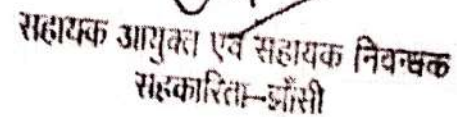 सहायक आयुक्त एवं सहायक निवन्धक
सहकारिता-झाँसी